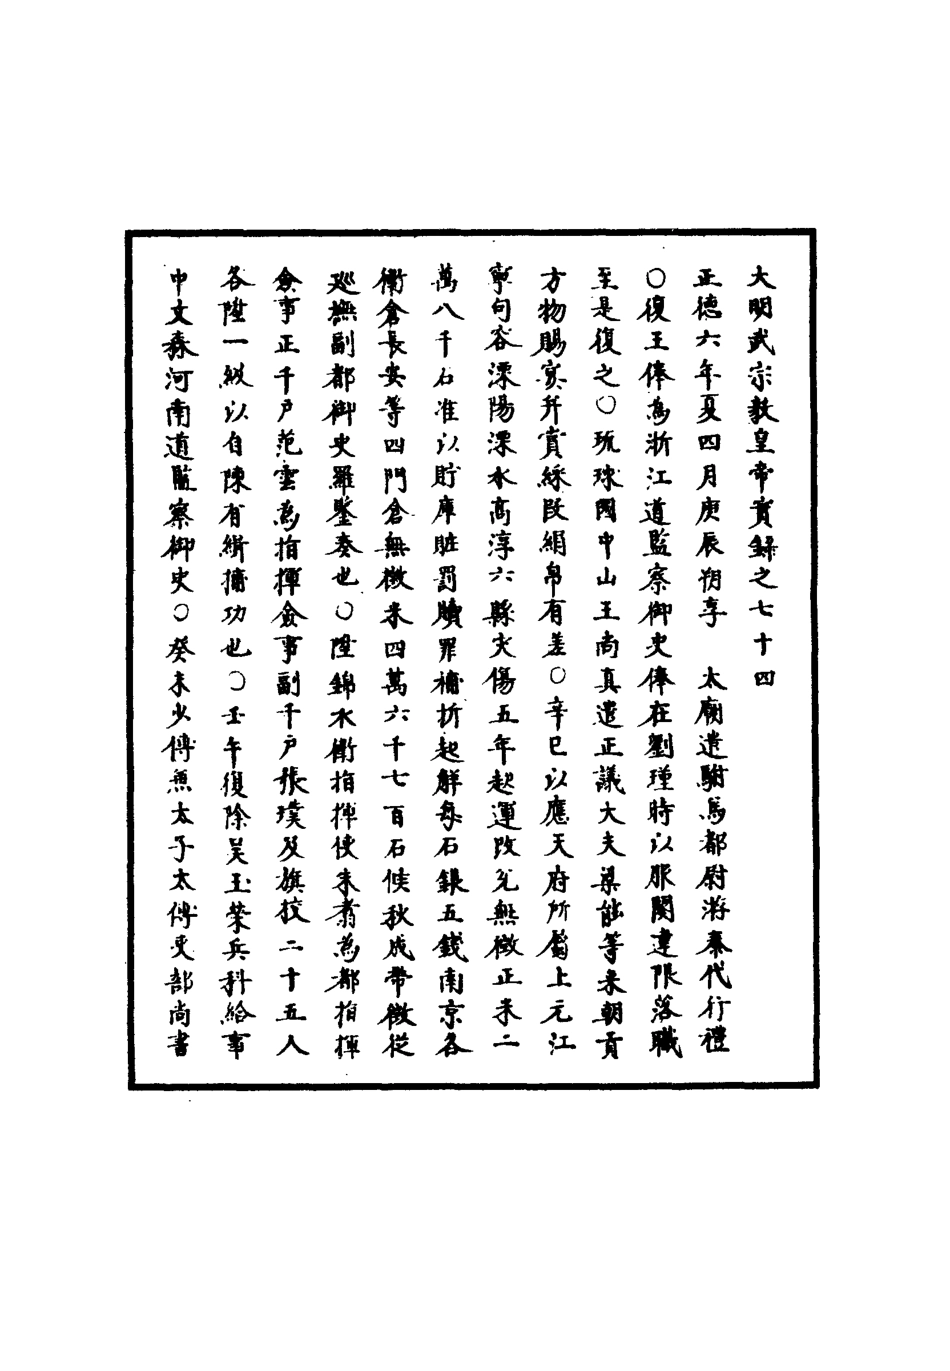 大明武宗毅皇帝實錄之七十四
正德六年夏四月庚辰朔享　太廟遣駙馬都尉游泰代行禮
○復王俸為浙江道監察御史俸在劉瑾時以服闋違限落職
至是復之○琉球國中山王尚真遣正議大夫梁能等來朝貢
方物賜宴并賞綵段絹帛有差○辛巳以應天府所屬上元江
寧句容溧陽溧水高淳六縣灾傷五年起運改兌無徵正米二
萬八千石准以貯庫賍罰贖罪補折起解每石銀五錢南京各
衛倉長安等四門倉無徵米四萬六千七百石候秋成帶徵從
巡撫副都御史羅鑒奏也○陞錦衣衛指揮使朱翥為都指揮
僉事正千户范雲為指揮僉事副千户張璞及旗校二十五人
各陞一級以自陳有緝捕功也○壬午復除吴玉榮兵科給事
中文森河南道監察御史○癸未少傅兼太子太傅吏部尚書